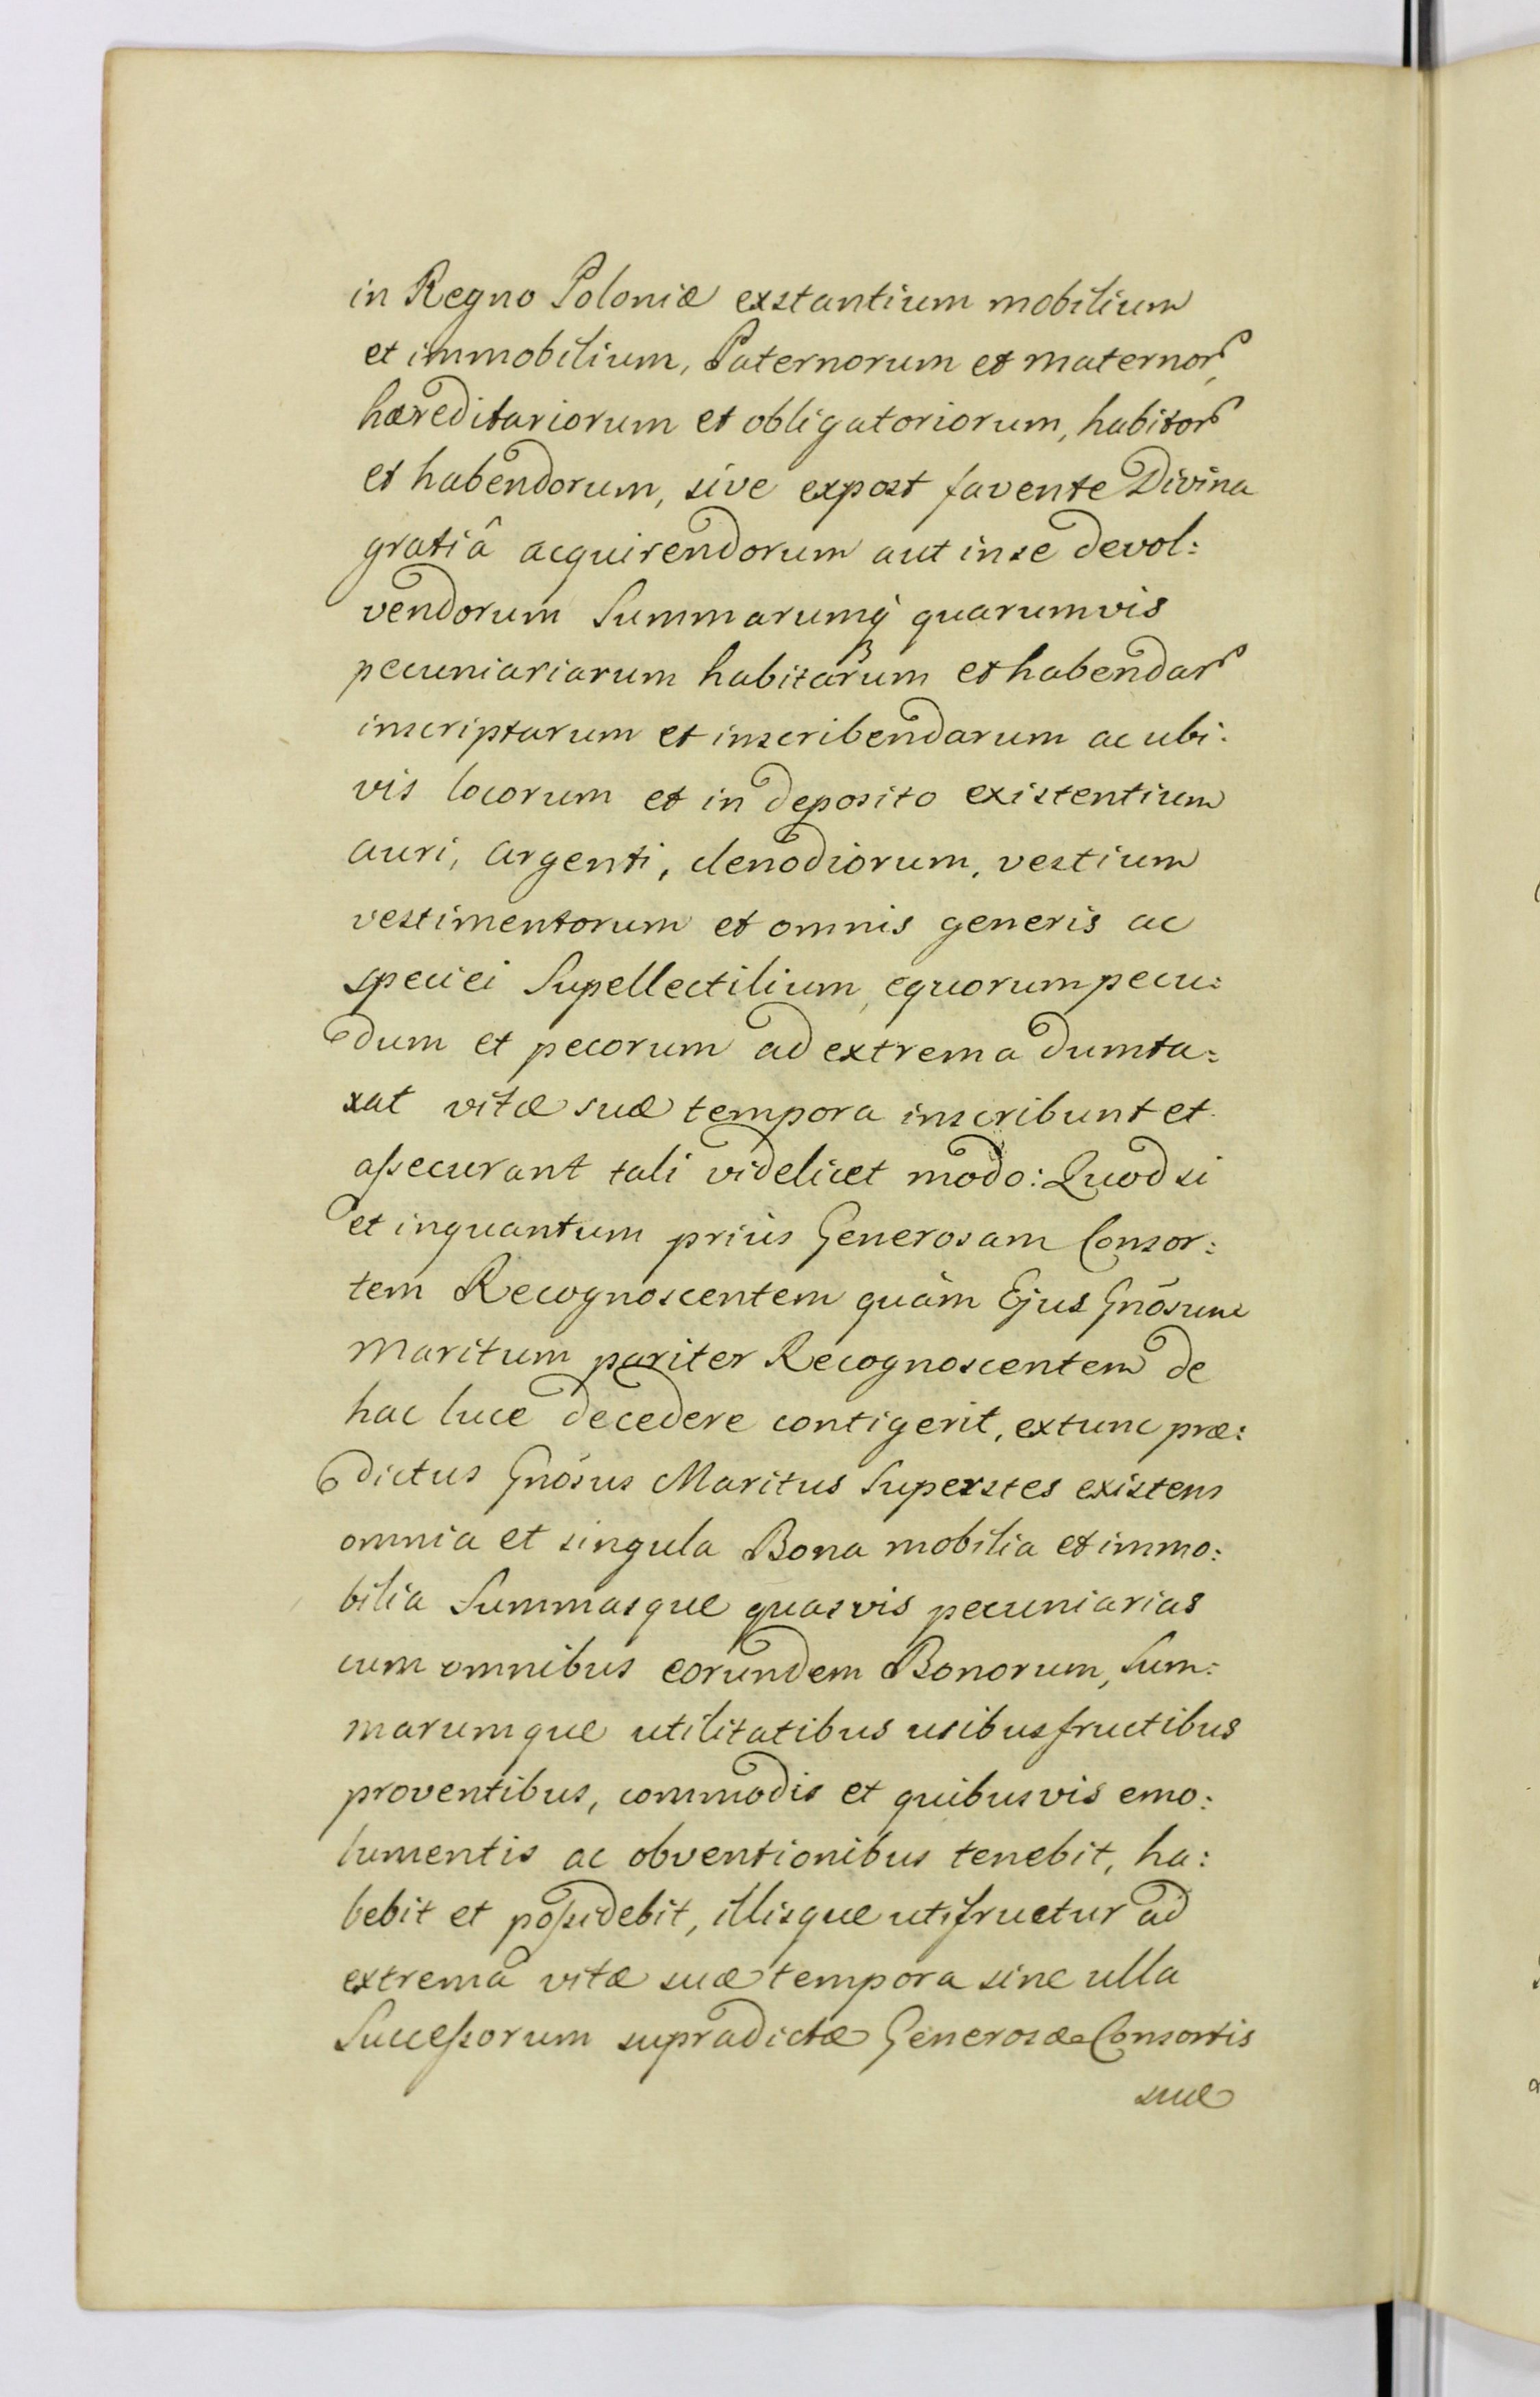 in Regno Poloniæ exstantium mobilium
et immobilium, Paternorum et maternor̃,
hæreditariorum et obligatoriorum, habitor̃
et habendorum, sive expost favente Divina
gratiâ acquirendorum aut in se devol:
vendorum Summarumq́ quarumvis
pecuniariarum habitarum et habendar̃
inscriptarum et inscribendarum ac ubi:
vis locorum et in deposito existentium
auri, argenti, clenodiorum, vestium
vestimentorum et omnis generis ac
speciei Supellectilium, equorum pecu:
dum et pecorum ad extrema dumta:
xat vitæ suæ tempora inscribunt et
assecurant tali videlicet modo: Quod si
et inquantum priùs Generosam Consor:
tem Recognoscentem quàm Ejus Gnõsum
Maritum pariter Recognoscentem de
hac luce decedere contigerit, extunc præ:
dictus Gnõsus Maritus Superstes existens
omnia et singula Bona mobilia et immo:
bilia Summasque quasvis pecuniarias
cum omnibus eorundem Bonorum, Sum:
marumque utilitatibus usibusfructibus
proventibus, commodis et quibusvis emo:
lumentis ac obventionibus tenebit, ha:
bebit et possidebit, illisque utifruetur ad
extrema vitæ suæ tempora sine ulla
Successorum supradictæ Generosæ Consortis
suæ